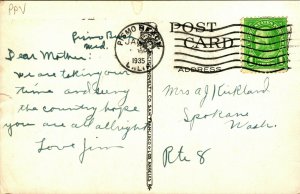 PPV
Pismo Beach
Wed.
Dear Mother:
we are taking our
time and seeing
the country hope
you are all allright
Love Jim
PISMO BEACH
JAN
1935
CALIF.
POST CARD
ADDRESS
Mrs A J Kirkland
Spokane
Wash.
Rte 8